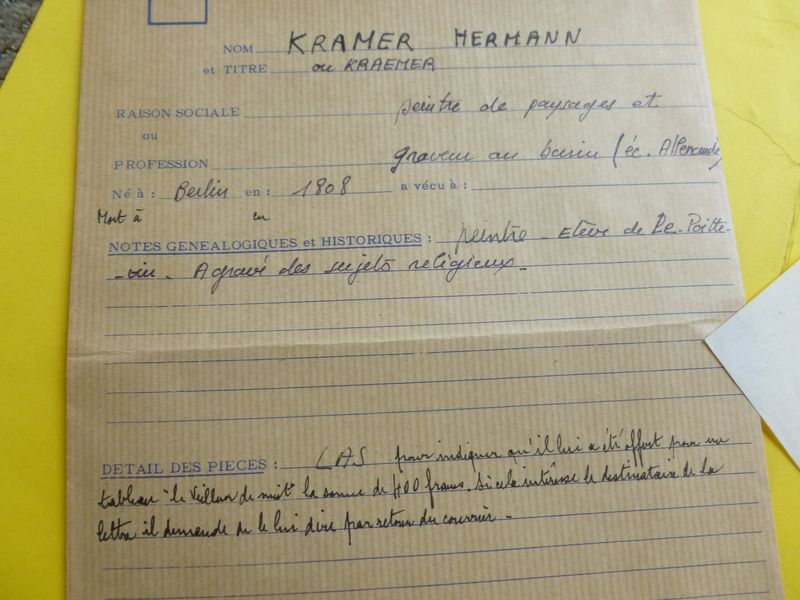 NOM KRAMER HERMANN
et TITRE ou KRAEMER
RAISON SOCIALE peintre de paysages et
ou
PROFESSION graveur au burin (éc. Allemande)
Né à : Berlin en : 1808 a vécu à :
Mort à en
NOTES GENEALOGIQUES et HISTORIQUES : peintre - Elève de Le Poitte-
-vin. A gravé des sujets religieux -
DETAIL DES PIECES : LAS pour indiquer qu'il lui a été offert pour un
tableau "le Veilleur de nuit" la somme de 400 francs. Si cela intéresse le destinataire de la
lettre il demande de le lui dire par retour du courrier -